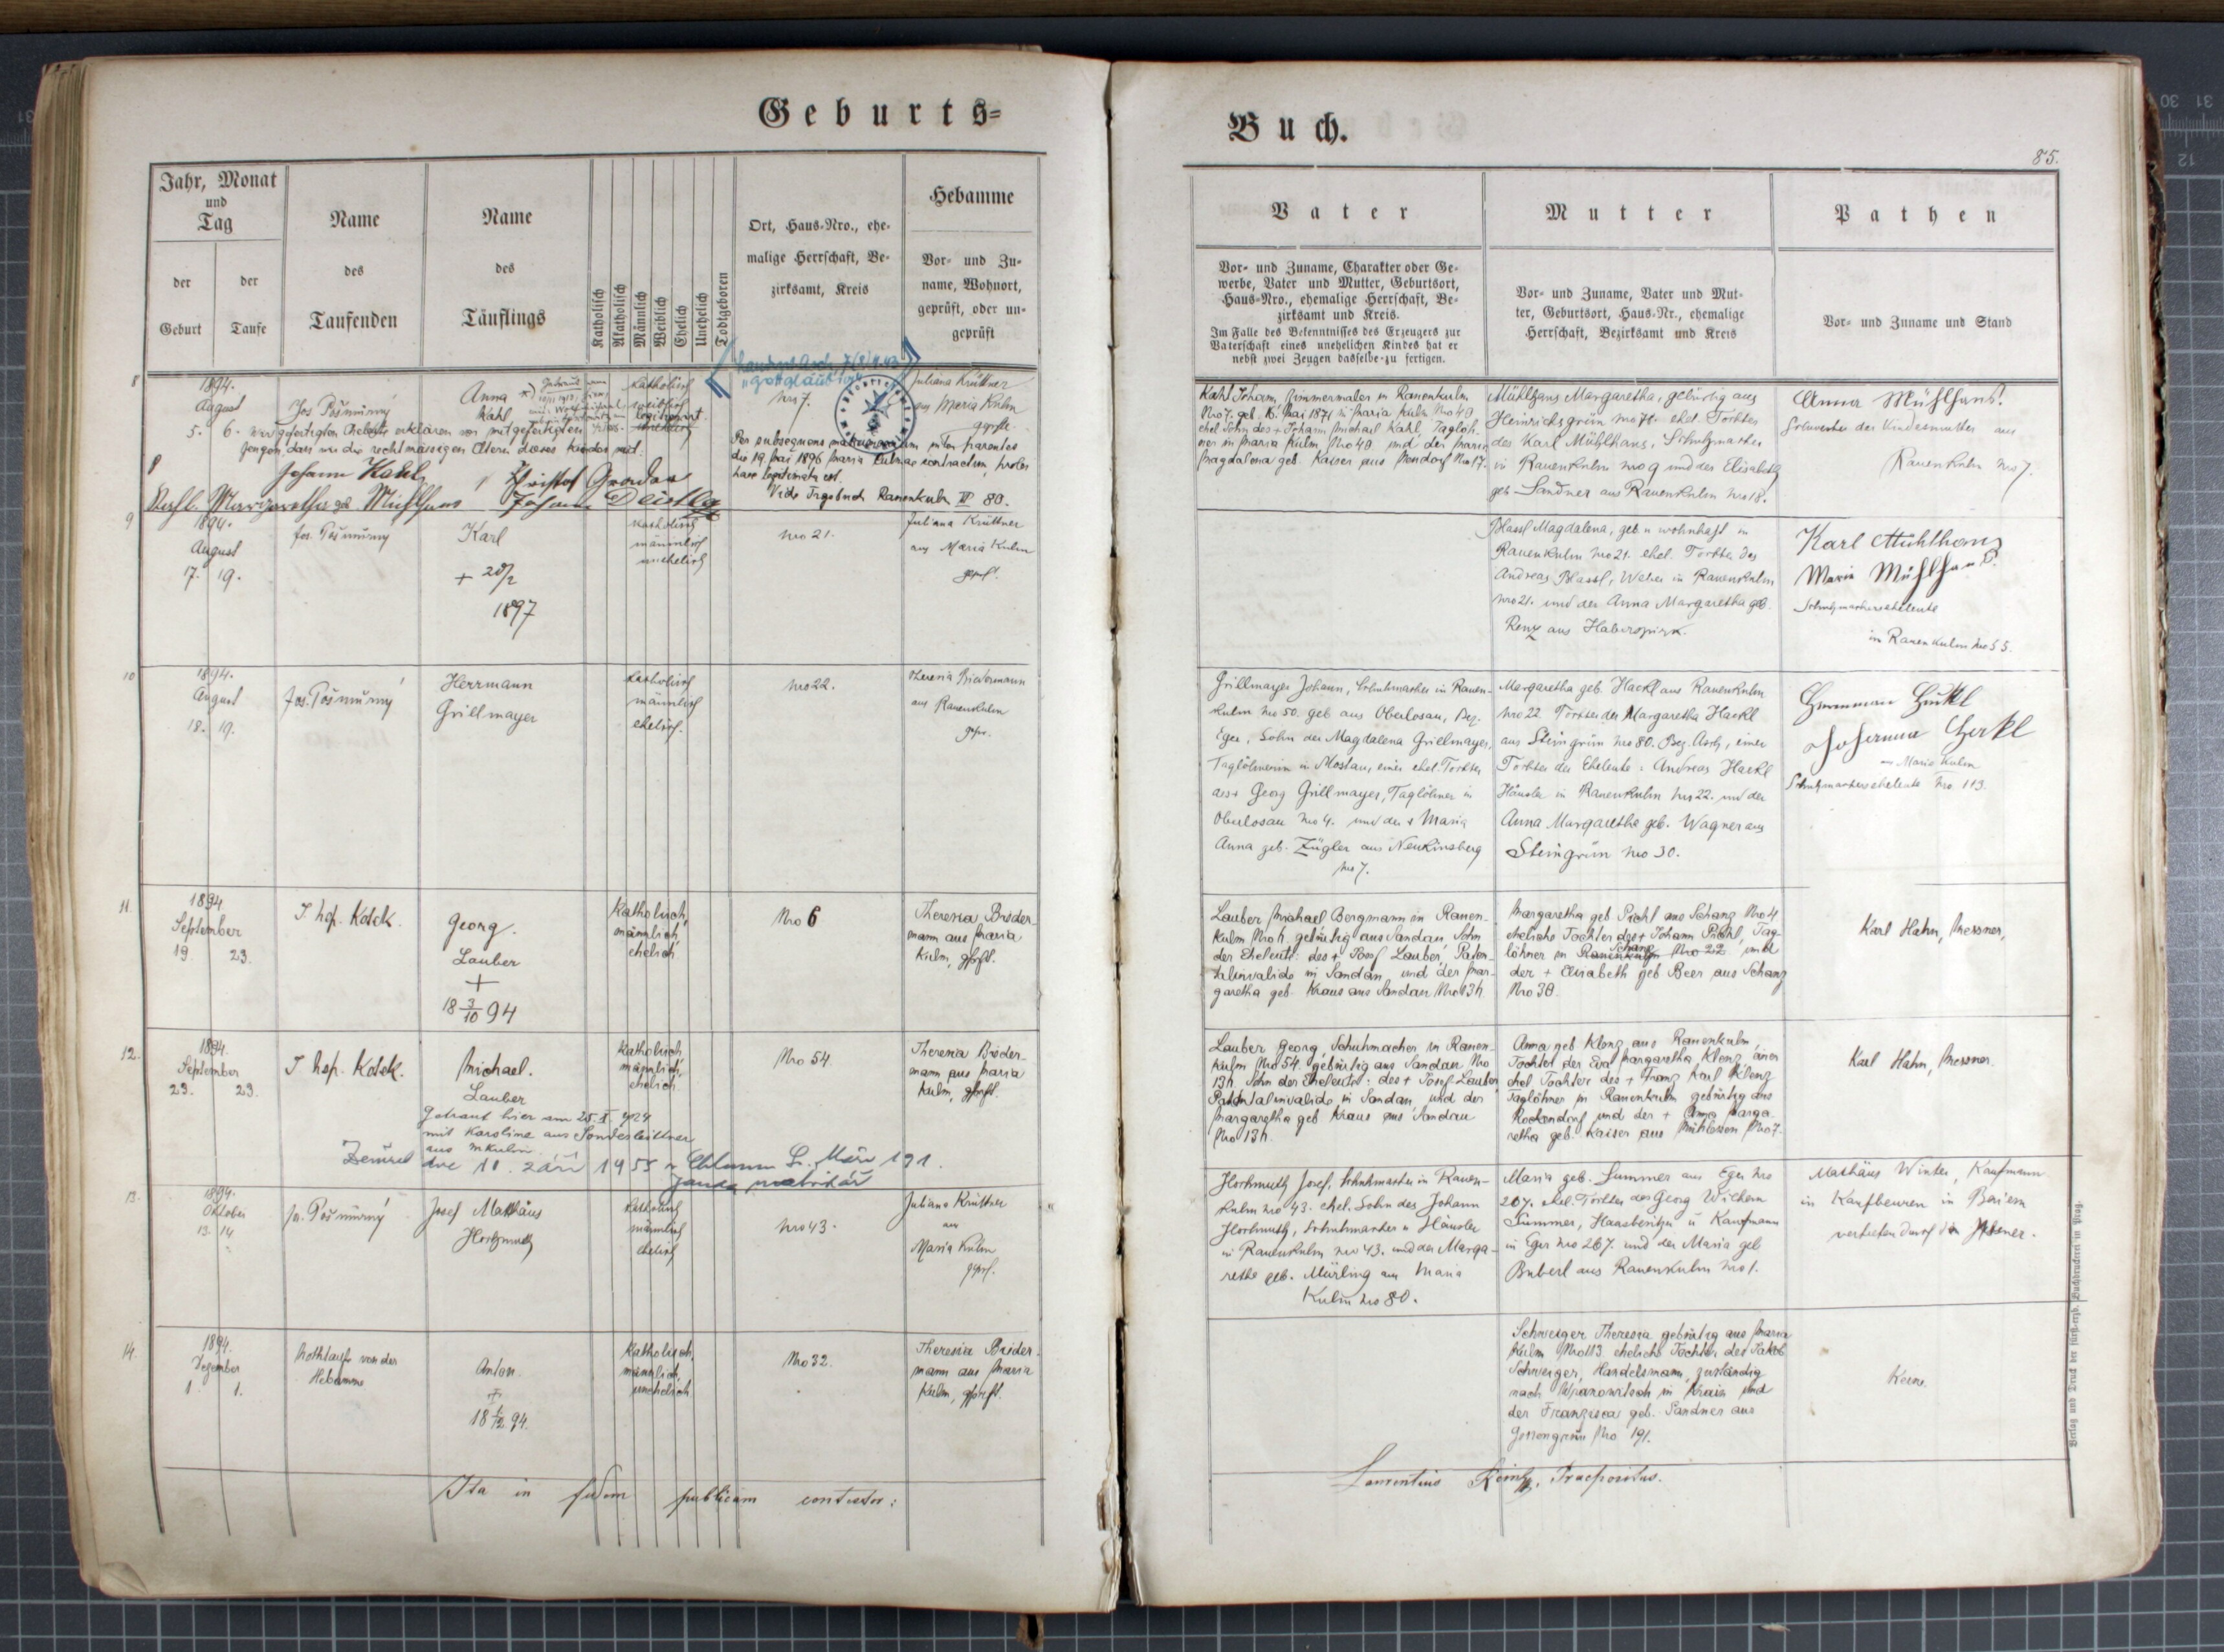 Geburts=
Jahr, Monat
und
Tag
der
Geburt
der
Taufe
Name
des
Taufenden
Name
des
Täuflings
Katholisch
Akatholisch
Männlich
Weiblich
Ehelich
Unehelich
Todtgeboren
Ort, Haus=Nro., ehe=
malige Herrschaft, Be=
zirksamt, Kreis
Hebamme
Vor= und Zu=
name, Wohnort,
geprüft, oder un=
geprüft
8
1894.
August
5. 6.
Jos Pošmurný
Anna
Kahl
katholisch
weiblich
legitimirt.
unehelich
Nro 7.
Juliana Krüttner
aus Maria Kulm
gprft.
erklären vor mitgefertigten
Zeugen, dass wir die rechtmässigen Eltern dieses Kindes sind.
Johann Kahl
Christof Grader
Kahl Margaretha geb Mühlhans
Johann
Per subsequens matrimonium inter parentes
die 19. Mai 1896 Maria Culmae contractum, proles
haec legitimata est.
Vide Tagebuch Rauenkulm IV 80.
9
1894.
August
17. 19.
Jos. Pošmurný
Karl
+ 20/2
1897
katholisch
männlich
unehelich
Nro 21.
Juliana Krüttner
aus Maria Kulm
gprft.
10
1894.
August
18. 19.
Jos. Pošmurný
Herrmann
Grillmayer
katholisch
männlich
ehelich.
Nro 22.
Theresia Bridermann
aus Rauenkulm
gprft.
11.
1894
September
19. 23.
Georg.
Lauber
+
18 3/10 94
Katholisch,
männlich,
ehelich
Nro 6
Theresia Brider-
mann aus Maria
Kulm, gprft.
12.
1894.
September
23. 23.
Michael.
Lauber
Katholisch,
männlich,
ehelich.
Nro 54.
Theresia Brider-
mann aus Maria
Kulm, gprft.
Getraut hier am 25. X. 1924
mit Karoline aus
aus MKulm.
Zemřel dne 11. září 1955 v Chlumu S. Máří 191.
Janda matrikář
13.
1894.
Oktober
13. 14
Jos. Pošmurný
Josef Matthäus
Horkmuth
katholisch
männlich
ehelich
Nro 43.
Juliana Krüttner
aus
Maria Kulm
gprf.
14.
1894.
Dezember
1. 1.
Nothtaufe von der
Hebamme
Anton
+
18 1/12 94.
Katholisch,
männlich,
unehelich
Nro 32.
Theresia Brider-
mann aus Maria
Kulm, gprft.
Ita in fidem publicam contestor:
Buch.
85.
Vater
Vor= und Zuname, Charakter oder Ge=
werbe, Vater und Mutter, Geburtsort,
Haus=Nro., ehemalige Herrschaft, Be=
zirksamt und Kreis.
Im Falle des Bekenntnisses des Erzeugers zur
Vaterschaft eines unehelichen Kindes hat er
nebst zwei Zeugen dasselbe zu fertigen.
Mutter
Vor= und Zuname, Vater und Mut=
ter, Geburtsort, Haus=Nr., ehemalige
Herrschaft, Bezirksamt und Kreis
Pathen
Vor= und Zuname und Stand
Kahl Johann, Zimmermaler in Rauenkulm
Nro 7. geb. 16. Mai 1871 in Maria Kulm Nro 49
ehel. Sohn des + Johann Michael Kahl, Taglöh-
ner in Maria Kulm Nro 49, und der Maria
Magdalena geb. Kaiser aus Mendorf Nro 17.
Mühlhans Margaretha, gebürtig aus
Heinrichsgrün Nro 71. ehel. Tochter
des Karl Mühlhans, Schuhmacher
in Rauenkulm Nro 9 und der Elisabeth
geb. Sandner aus Rauenkulm Nro 18.
Anna Mühlhans.
Schwester der Kindesmutter aus
Rauenkulm Nro 7.
Blassl Magdalena, geb. u wohnhaft in
Rauenkulm Nro 21. ehel. Tochter des
Andreas Blassl, Weber in Rauenkulm
Nro 21. und der Anna Margaretha geb.
Renz aus Haberspirk.
Karl Mühlhans
Maria Mühlhans.
Schuhmacherseheleute
in Rauenkulm Nro 55.
Grillmayer Johann, Schuhmacher in Rauen-
kulm Nro 50. geb. aus Oberlosau, Bez.
Eger, Sohn der Magdalena Grillmayer,
Taglöhnerin in Mostau, einer ehel. Tochter
des + Georg Grillmayer, Taglöhner in
Oberlosau Nro 4. und der + Maria
Anna geb. Zügler aus Neukinsberg
Nro 7.
Margaretha geb. Hackl aus Rauenkulm
Nro 22. Tochter der Margaretha Hackl
aus Steingrün Nro 80. Bez. Asch, einer
Tochter der Eheleute: Andreas Hackl
Häusler in Rauenkulm Nro 22. und der
Anna Margaretha geb. Wagner aus
Steingrün Nro 30.
aus Maria Kulm
Schuhmacherseheleute Nro 113.
Lauber Michael Bergmann in Rauen-
kulm Nro 6. gebürtig aus Sandau, Sohn
der Eheleute: des + Josef Lauber, Paten-
talinvalide in Sandau, und der Mar-
garetha geb. Kraus aus Sandau Nro 134
Margaretha geb Pichl aus Schanz Nro 4
eheliche Tochter des + Johann Pichl, Tag-
löhner in Rauenkulm Schanz Nro 22 und
der + Elisabeth geb Beer aus Schanz
Nro 30.
Karl Hahn, Messner,
Lauber Georg, Schuhmacher in Rauen-
kulm Nro 54. gebürtig aus Sandau Nro
134. Sohn der Eheleute: des + Josef Lauber
Patentalinvalide in Sandau und der
Margaretha geb Kraus aus Sandau
Nro 134.
Anna geb Klenz aus Rauenkulm,
Tochter der Eva Margaretha Klenz einer
ehel Tochter des + Franz Karl Klenz
Taglöhner in Rauenkulm gebürtig aus
Rockendorf und der + Anna Marga-
retha geb. Kaiser aus Mühlessen Nro 7.
Karl Hahn, Messner.
Horkmuth Josef, Schuhmacher in Rauen-
kulm Nro 43. ehel. Sohn des Johann
Horkmuth, Schuhmacher u Häusler
in Rauenkulm Nro 43. und der Marga-
retha geb. Mürling aus Maria
Kulm Nro 80.
Maria geb. Summer aus Eger Nro
267. ehel. Tochter des Georg Wilhelm
Summer, Hausbesitzer u Kaufmann
in Eger Nro 267. und der Maria geb
Buberl aus Rauenkulm Nro 1.
Mathäus Winter, Kaufmann
in Kaufbeuren in Baiern
vertreten durch den Messner.
Schweiger Theresia gebürtig aus Maria
Kulm Nro 113 eheliche Tochter des Jakob
Schweiger, Handelsmann, zuständig
nach in Krain und
der Franzisca geb. Sandner aus
Gossengrün Nro 191.
Keine.
Laurentius Praepositus.
Verlag und Druck der fürst.=erzb. Buchdruckerei in Prag.